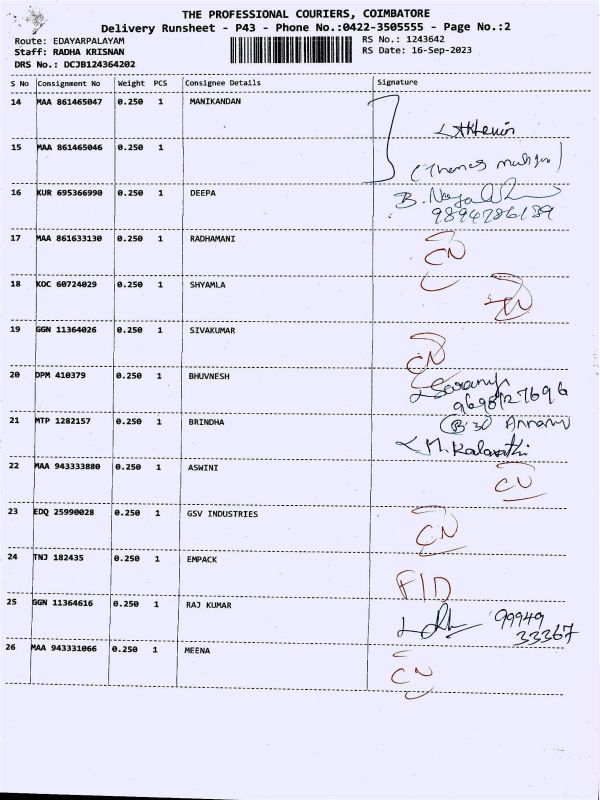 THE PROFESSIONAL COURIERS, COIMBATORE
Delivery Runsheet - P43 - Phone No.:0422-3505555 - Page No.:2
Route: EDAYARPALAYAM
RS No.: 1243642
Staff: RADHA KRISNAN
RS Date: 16-Sep-2023
DRS No.: DCJB124364202
S No Consignment No Weight PCS Consignee Details Signature
14 MAA 861465047 0.250 1 MANIKANDAN
15 MAA 861465046 0.250 1
16 KUR 695366990 0.250 1 DEEPA B.
9894286189
17 MAA 861633130 0.250 1 RADHAMANI CN
18 KOC 60724029 0.250 1 SHYAMLA
19 GGN 11364026 0.250 1 SIVAKUMAR CN
20 DPM 410379 0.250 1 BHUVNESH Saranya
9698127696
21 MTP 1282157 0.250 1 BRINDHA
M. Kalavathi
22 MAA 943333880 0.250 1 ASWINI CN
23 EDQ 25990028 0.250 1 GSV INDUSTRIES CN
24 TNJ 182435 0.250 1 EMPACK F/D
25 GGN 11364616 0.250 1 RAJ KUMAR 99949
33367
26 MAA 943331066 0.250 1 MEENA CN